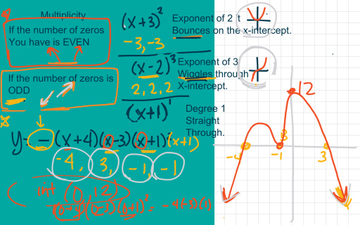 Multiplicity
If the number of zeros
You have is EVEN
If the number of zeros is
ODD
(x+3)²
-3,-3
(x-2)³
2,2,2
(x+1)¹
Exponent of 2
Bounces on the x-intercept.
Exponent of 3
Wiggles through
X-intercept.
Degree 1
Straight
Through.
y= - (x+4)(x-3)(x+1)(x+1)
-4, 3, -1, -1
12
-4
-1
3